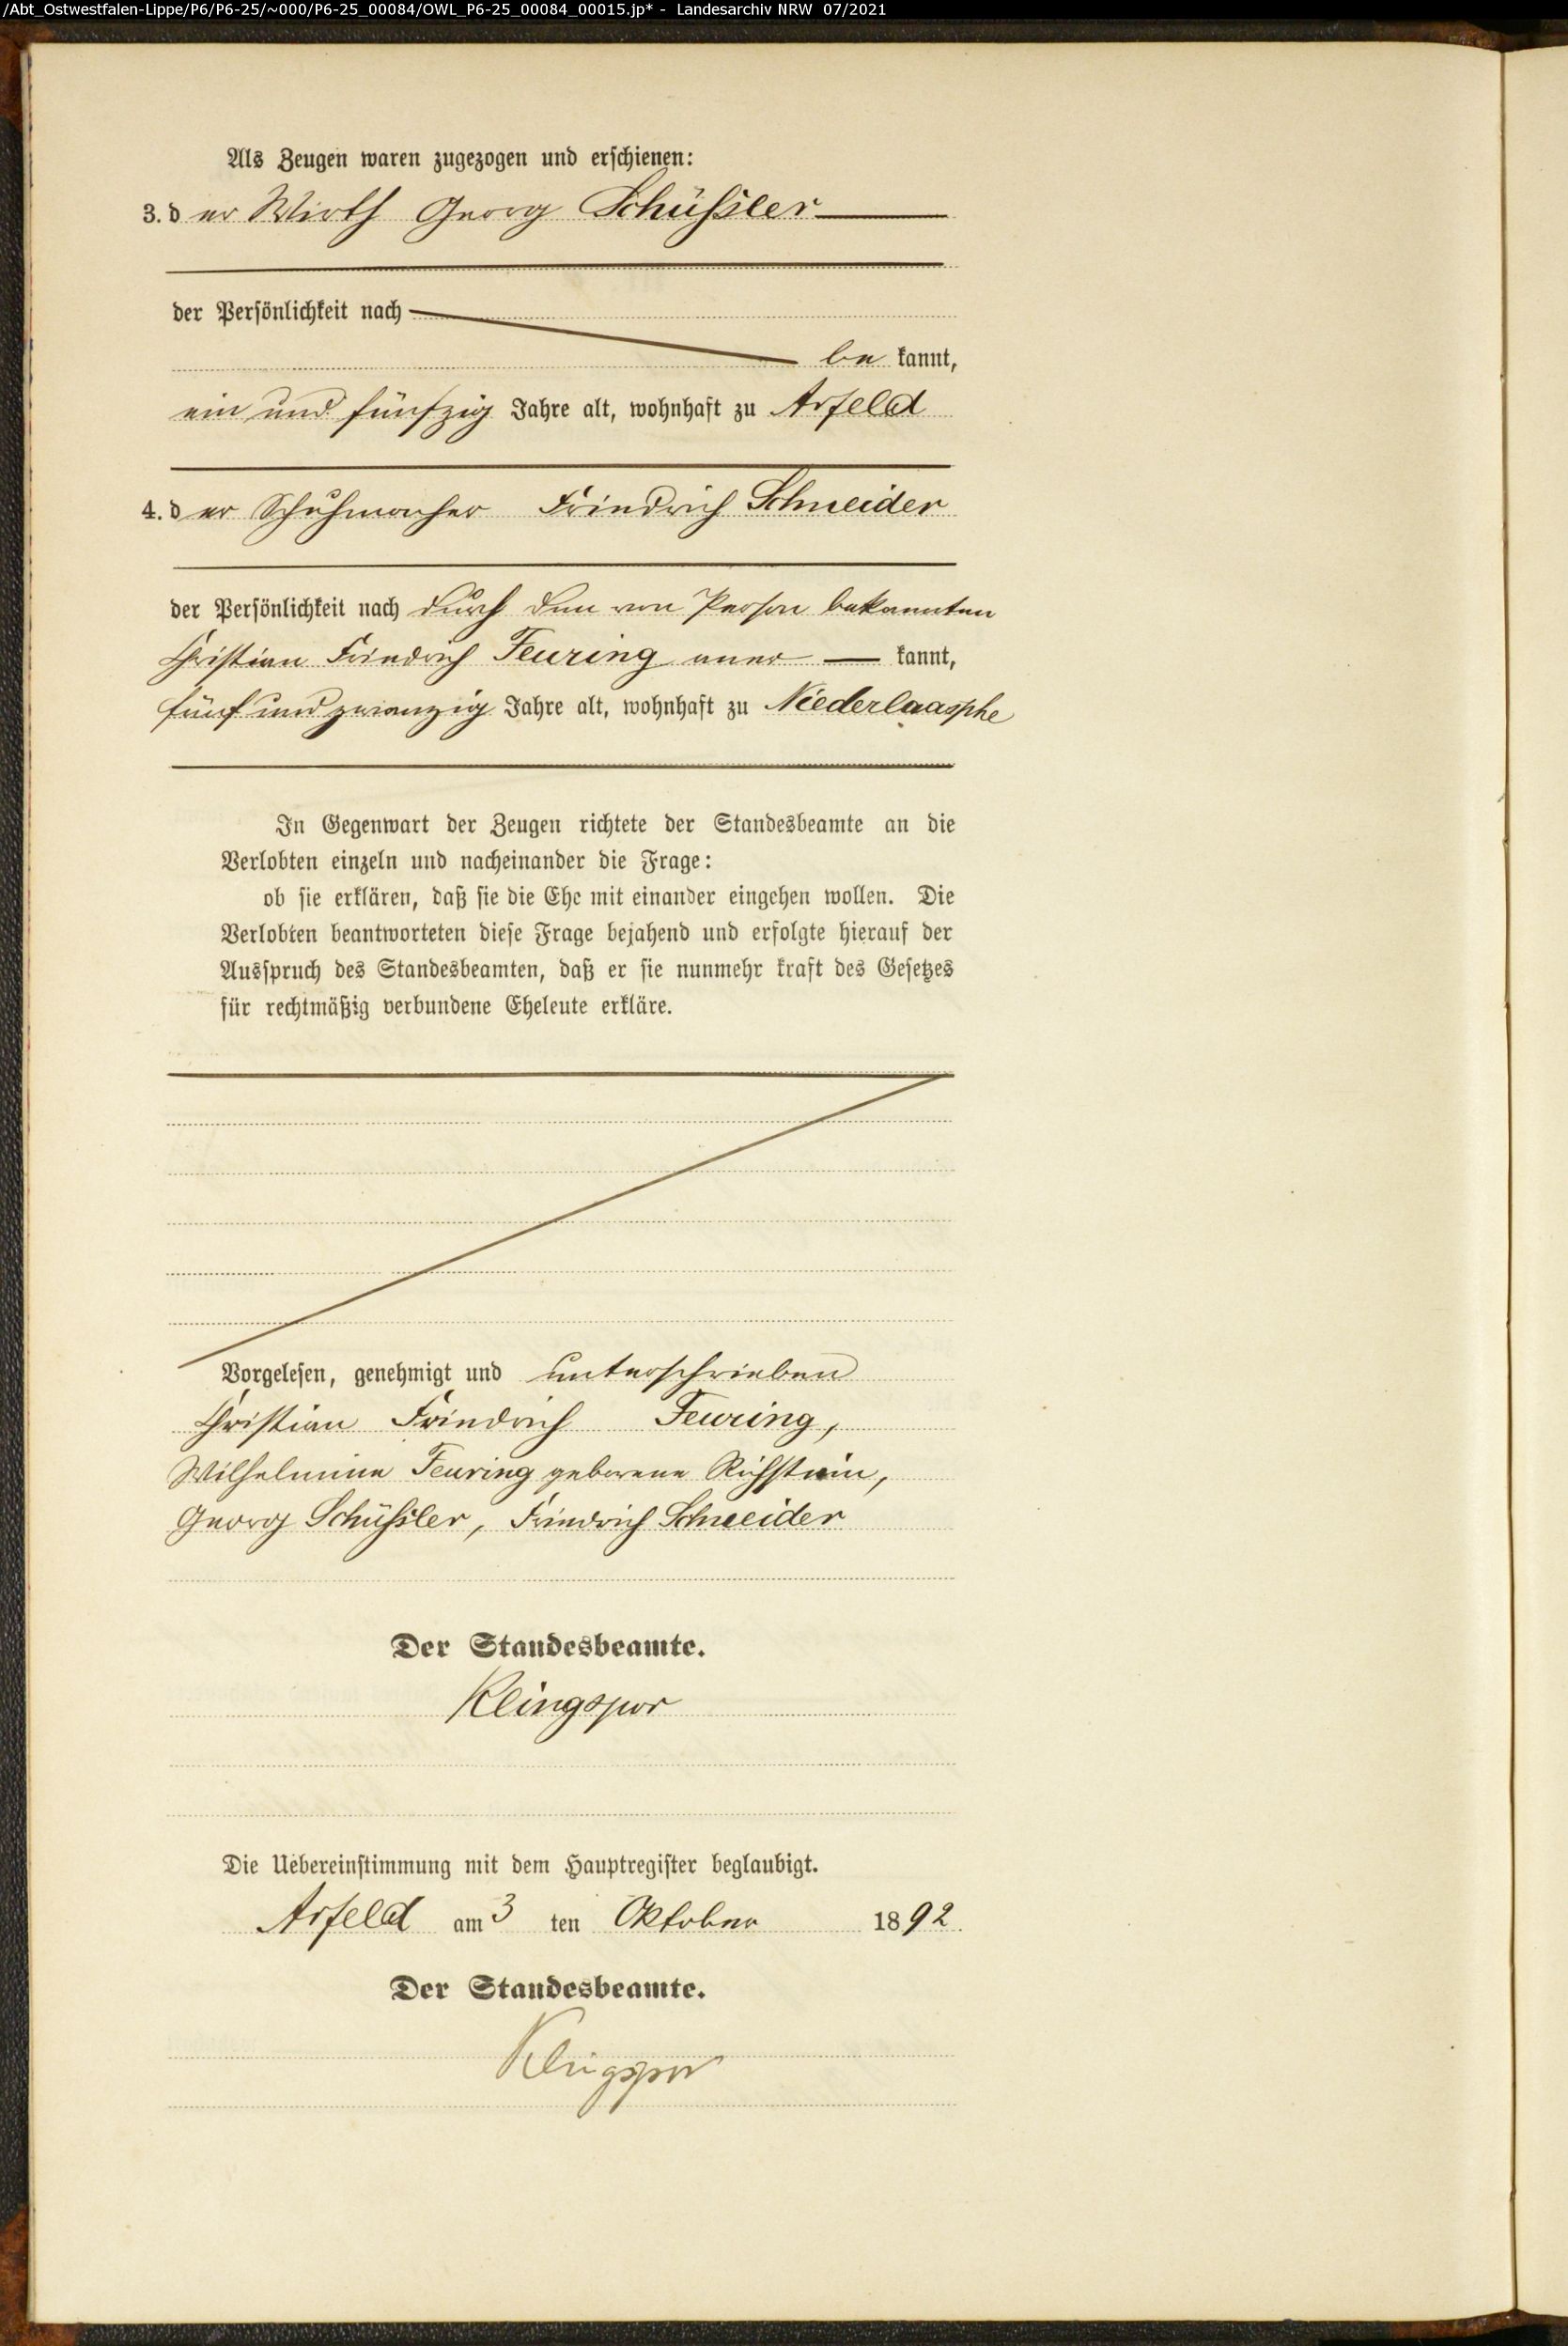 /Abt_Ostwestfalen-Lippe/P6/P6-25/~000/P6-25_00084/OWL_P6-25_00084_00015.jp* - Landesarchiv NRW 07/2021
Als Zeugen waren zugezogen und erschienen:
3. der Wirth Georg Schüßler
der Persönlichkeit nach
be kannt,
ein und fünfzig Jahre alt, wohnhaft zu Arfeld
4. der Schuhmacher Friedrich Schneider
der Persönlichkeit nach durch den von Person bekannten
Christian Friedrich Feuring aner kannt,
fünf und zwanzig Jahre alt, wohnhaft zu Niederlaasphe
In Gegenwart der Zeugen richtete der Standesbeamte an die
Verlobten einzeln und nacheinander die Frage:
ob sie erklären, daß sie die Ehe mit einander eingehen wollen. Die
Verlobten beantworteten diese Frage bejahend und erfolgte hierauf der
Ausspruch des Standesbeamten, daß er sie nunmehr kraft des Gesetzes
für rechtmäßig verbundene Eheleute erkläre.
Vorgelesen, genehmigt und unterschrieben
Christian Friedrich Feuring,
Wilhelmine Feuring geborene Richstein,
Georg Schüßler, Friedrich Schneider
Der Standesbeamte.
Klingspor
Die Uebereinstimmung mit dem Hauptregister beglaubigt.
Arfeld am 3 ten Oktober 1892.
Der Standesbeamte.
Klingspor